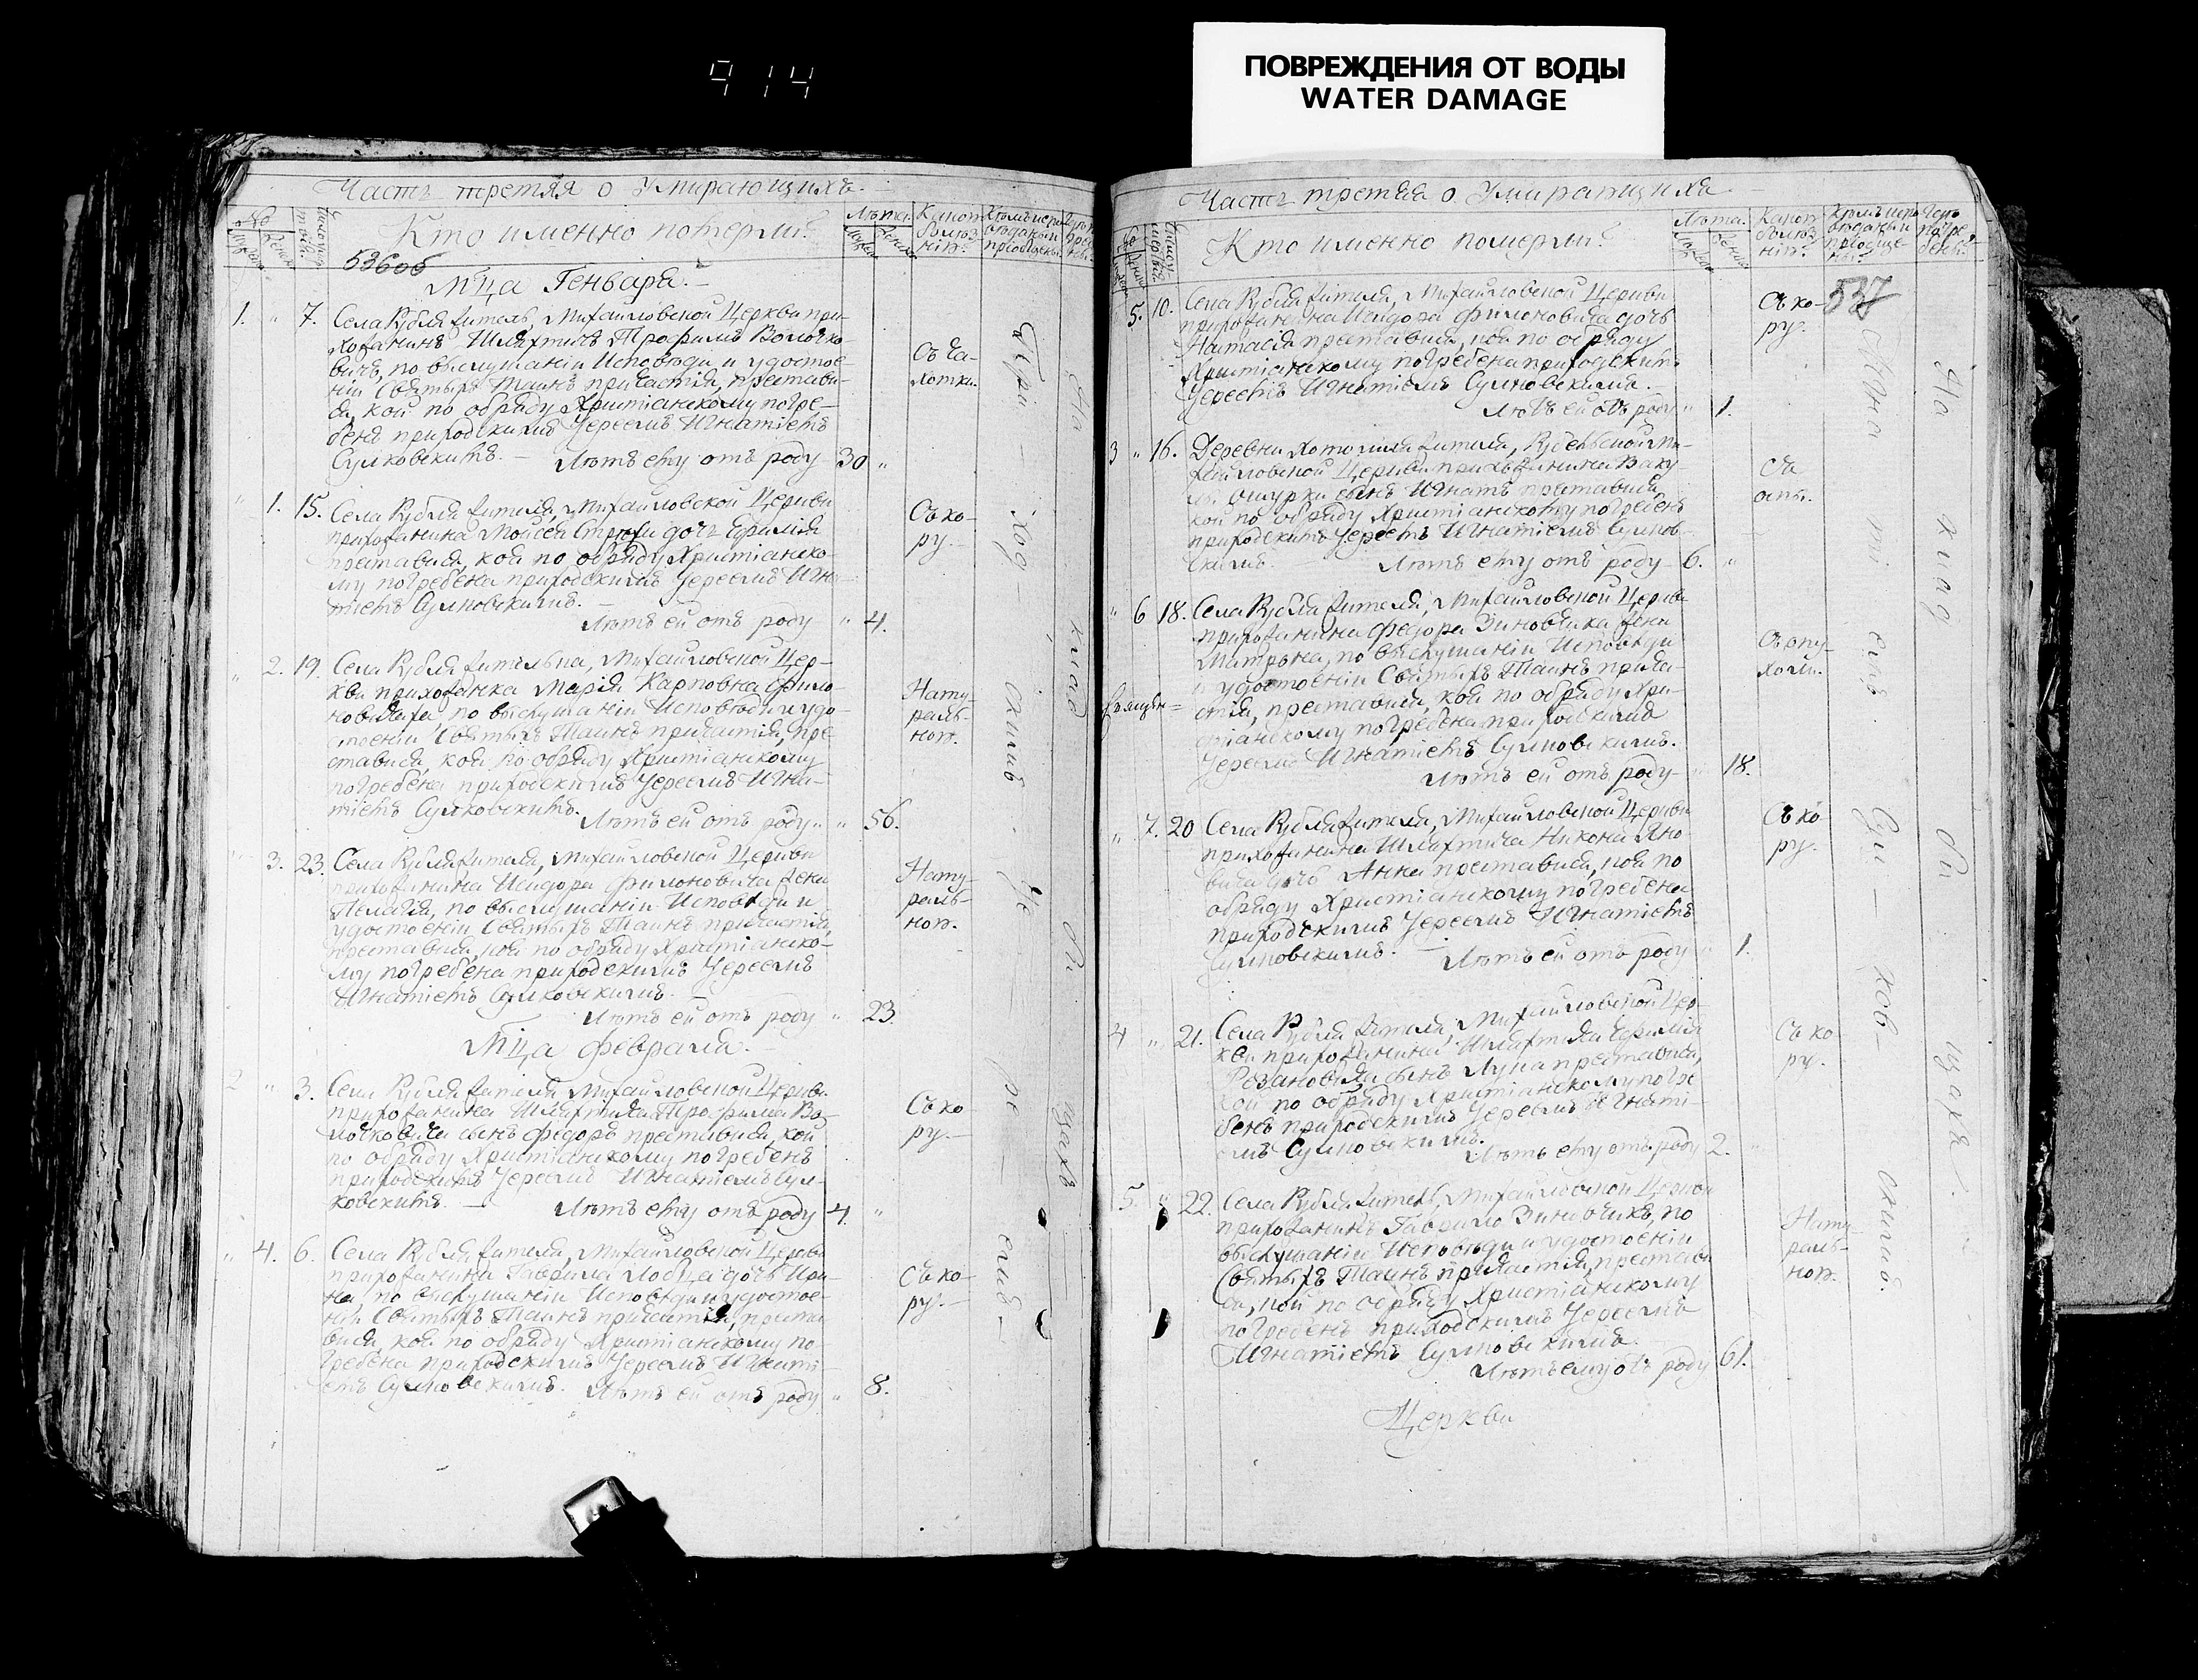 914
ПОВРЕЖДЕНИЯ ОТ ВОДЫ
WATER DAMAGE
Часть третяя о Умирающихъ.
Кто именно померли?
Лѣта.
536об
Мца Генваря.
1. " 7. Села Рубля житель, Михайловской Церкви при-
хожанинъ Шляхтичъ Трофимъ Волочко-
вичъ, по выслушаніи Исповѣди и удостое-
ніи Святыхъ Таинъ причастія, престави-
ся, кой по обряду Христіанскому погре-
бенъ приходскимъ Іереемъ Игнатіемъ
Сулковскимъ. — Лѣтъ ему отъ роду 30 "
Съ ча-
хотки.
" 1. 15. Села Рубля жителя, Михайловской Церкви
прихожанина Мойсея дочь Ефимія
преставися, коя по обряду Христіанско-
му погребена приходскимъ Іереемъ Игна-
тіемъ Сулковскимъ. —
Лѣтъ ей отъ роду " 4.
Съ ко-
ру.
" 2. 19. Села Рубля жителька, Михайловской Цер-
кви прихожанка Марія Карповна Фило-
новичова, по выслушаніи Исповѣди и удо-
стоеніи Святыхъ Таинъ причастія, пре-
ставися, коя по обряду Христіанскому
погребена приходскимъ Іереемъ Игна-
тіемъ Сулковскимъ. Лѣтъ ей отъ роду " 56.
Нату-
раль-
ной.
" 3. 23. Села Рубля жителя, Михайловской Церкви
прихожанина Исидора Филоновича жена
Пелагія, по выслушаніи Исповѣди и
удостоеніи Святыхъ Таинъ причастія,
преставися, коя по обряду Христіанско-
му погребена приходскимъ Іереемъ
Игнатіемъ Сулковскимъ. —
Лѣтъ ей отъ роду " 23.
Нату-
раль-
ной.
Мца Февраля. —
2 " 3. Села Рубля жителя, Михайловской Церкви
прихожанина Шляхтича Трофима Во-
лочковича сынъ Федоръ преставися, кой
по обряду Христіанскому погребенъ
приходскимъ Іереемъ Игнатіемъ Сул-
ковскимъ. — Лѣтъ ему отъ роду 4. "
Съ ко-
ру. —
" 4. 6. Села Рубля жителя, Михайловской Церкви
прихожанина Гаврила дочь Ири-
на, по выслушаніи Исповѣди и удостое-
ніи Святыхъ Таинъ причастія, преста-
вися, коя по обряду Христіанскому по-
гребена приходскимъ Іереемъ Игнаті-
емъ Сулковскимъ. Лѣтъ ей отъ роду " 8.
Съ ко-
ру. —
При — ход — скимъ — Іе — ре — емъ —
На клад би щахъ
Часть третяя о Умирающихъ
Кто именно померли?
Лѣта.
537
5. 10. Села Рубля жителя, Михайловской Церкви
прихожанина Исидора Филоновича дочь
Настасія преставися, коя по обряду
Христіанскому погребена приходскимъ
Іереемъ Игнатіемъ Сулковскимъ. —
Лѣтъ ей отъ роду " 1.
Съ ко-
ру.
3 " 16. Деревни жителя, Рубельской Ми-
хайловской Церкви прихожанина Ваку-
сынъ Игнатъ преставися,
кой по обряду Христіанскому погребенъ
приходскимъ Іереемъ Игнатіемъ Сулков-
скимъ. Лѣтъ ему отъ роду 6. "
Съ
оспы.
" 6 18. Села Рубля жителя, Михайловской Церкви
прихожанина Федора Зиновчика жена
Матрона, по выслушаніи Исповѣди
и удостоеніи Святыхъ Таинъ прича-
стія, преставися, коя по обряду Хри-
стіанскому погребена приходскимъ
Іереемъ Игнатіемъ Сулковскимъ.
Лѣтъ ей отъ роду " 18.
Съ опу-
холи.
" 7. 20 Села Рубля жителя, Михайловской Церкви
прихожанина Шляхтича Никона Яно
вича дочь Анна преставися, коя по
обряду Христіанскому погребена
приходскимъ Іереемъ Игнатіемъ
Сулковскимъ. — Лѣтъ ей отъ роду " 1.
Съ ко
ру.
4 " 21. Села Рубля жителя, Михайловской Цер-
кви прихожанина Шляхтича
Розановича сынъ Лука преставися,
кой по обряду Христіанскому погре
бенъ приходскимъ Іереемъ Игнаті-
емъ Сулковскимъ.
Лѣтъ ему отъ роду 2. "
Съ ко
ру.
5. " 22. Села Рубля житель, Михайловской Церкви
прихожанинъ Гаврило Зиновчикъ, по
выслушаніи Исповѣди и удостоеніи
Святыхъ Таинъ причастія, престави
ся, кой по обряду Христіанскому
погребенъ приходскимъ Іереемъ
Игнатіемъ Сулковскимъ.
Лѣтъ ему отъ роду 61.
Нату-
раль-
ной.
Игна ті емъ Сул — ков — скимъ.
На клад би щахъ.
Церкви